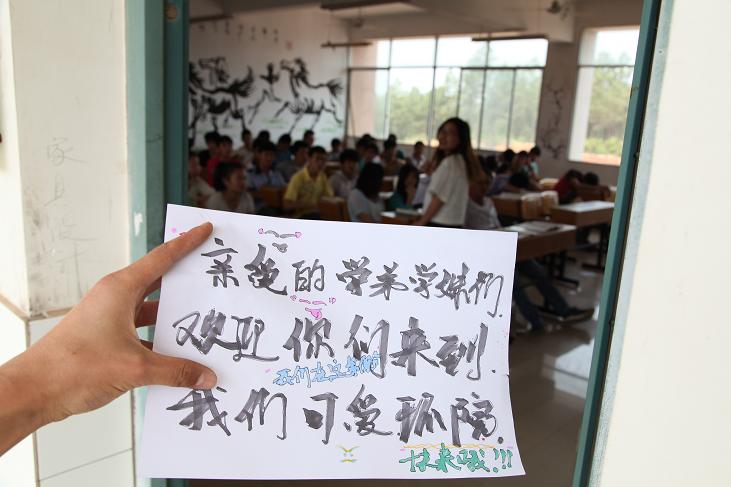 家具设计
亲爱的学弟学妹们.
欢迎你们来到.
我们在这等你
我们可爱环院.
快来哦!!!